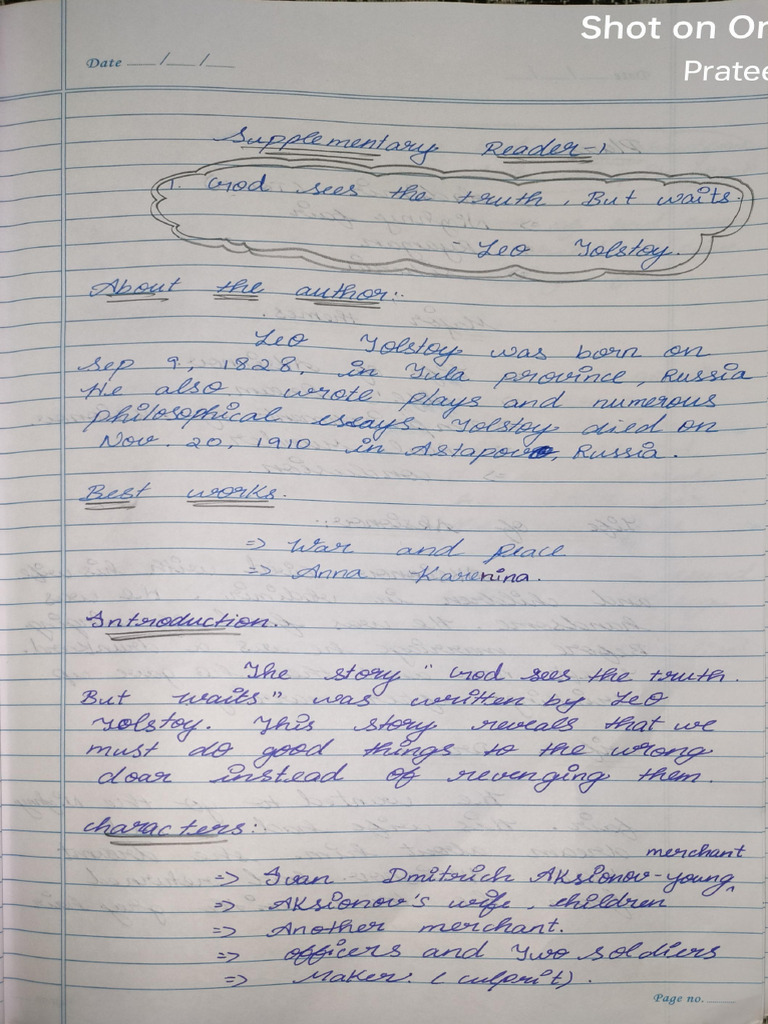 Shot on On
Pratee
Date __/__/__
Supplementary Reader-1
1. God sees the truth, But waits.
- Leo Tolstoy.
About the author:-
Leo Tolstoy was born on
Sep 9, 1828, in Tula province, Russia
He also wrote plays and numerous
philosophical essays. Tolstoy died on
Nov. 20, 1910 in Astapovo, Russia.
Best works.
=> War and peace
=> Anna Karenina.
Introduction.
The story "God sees the truth.
But waits" was written by Leo
Tolstoy. This story reveals that we
must do good things to the wrong
doar instead of revenging them.
characters:
merchant
=> Ivan Dmitrich Aksionov-young^
=> Aksionov's wife, children
=> Another merchant.
=> officers and Two soldiers
=> Maker. (culprit).
Page no. ___